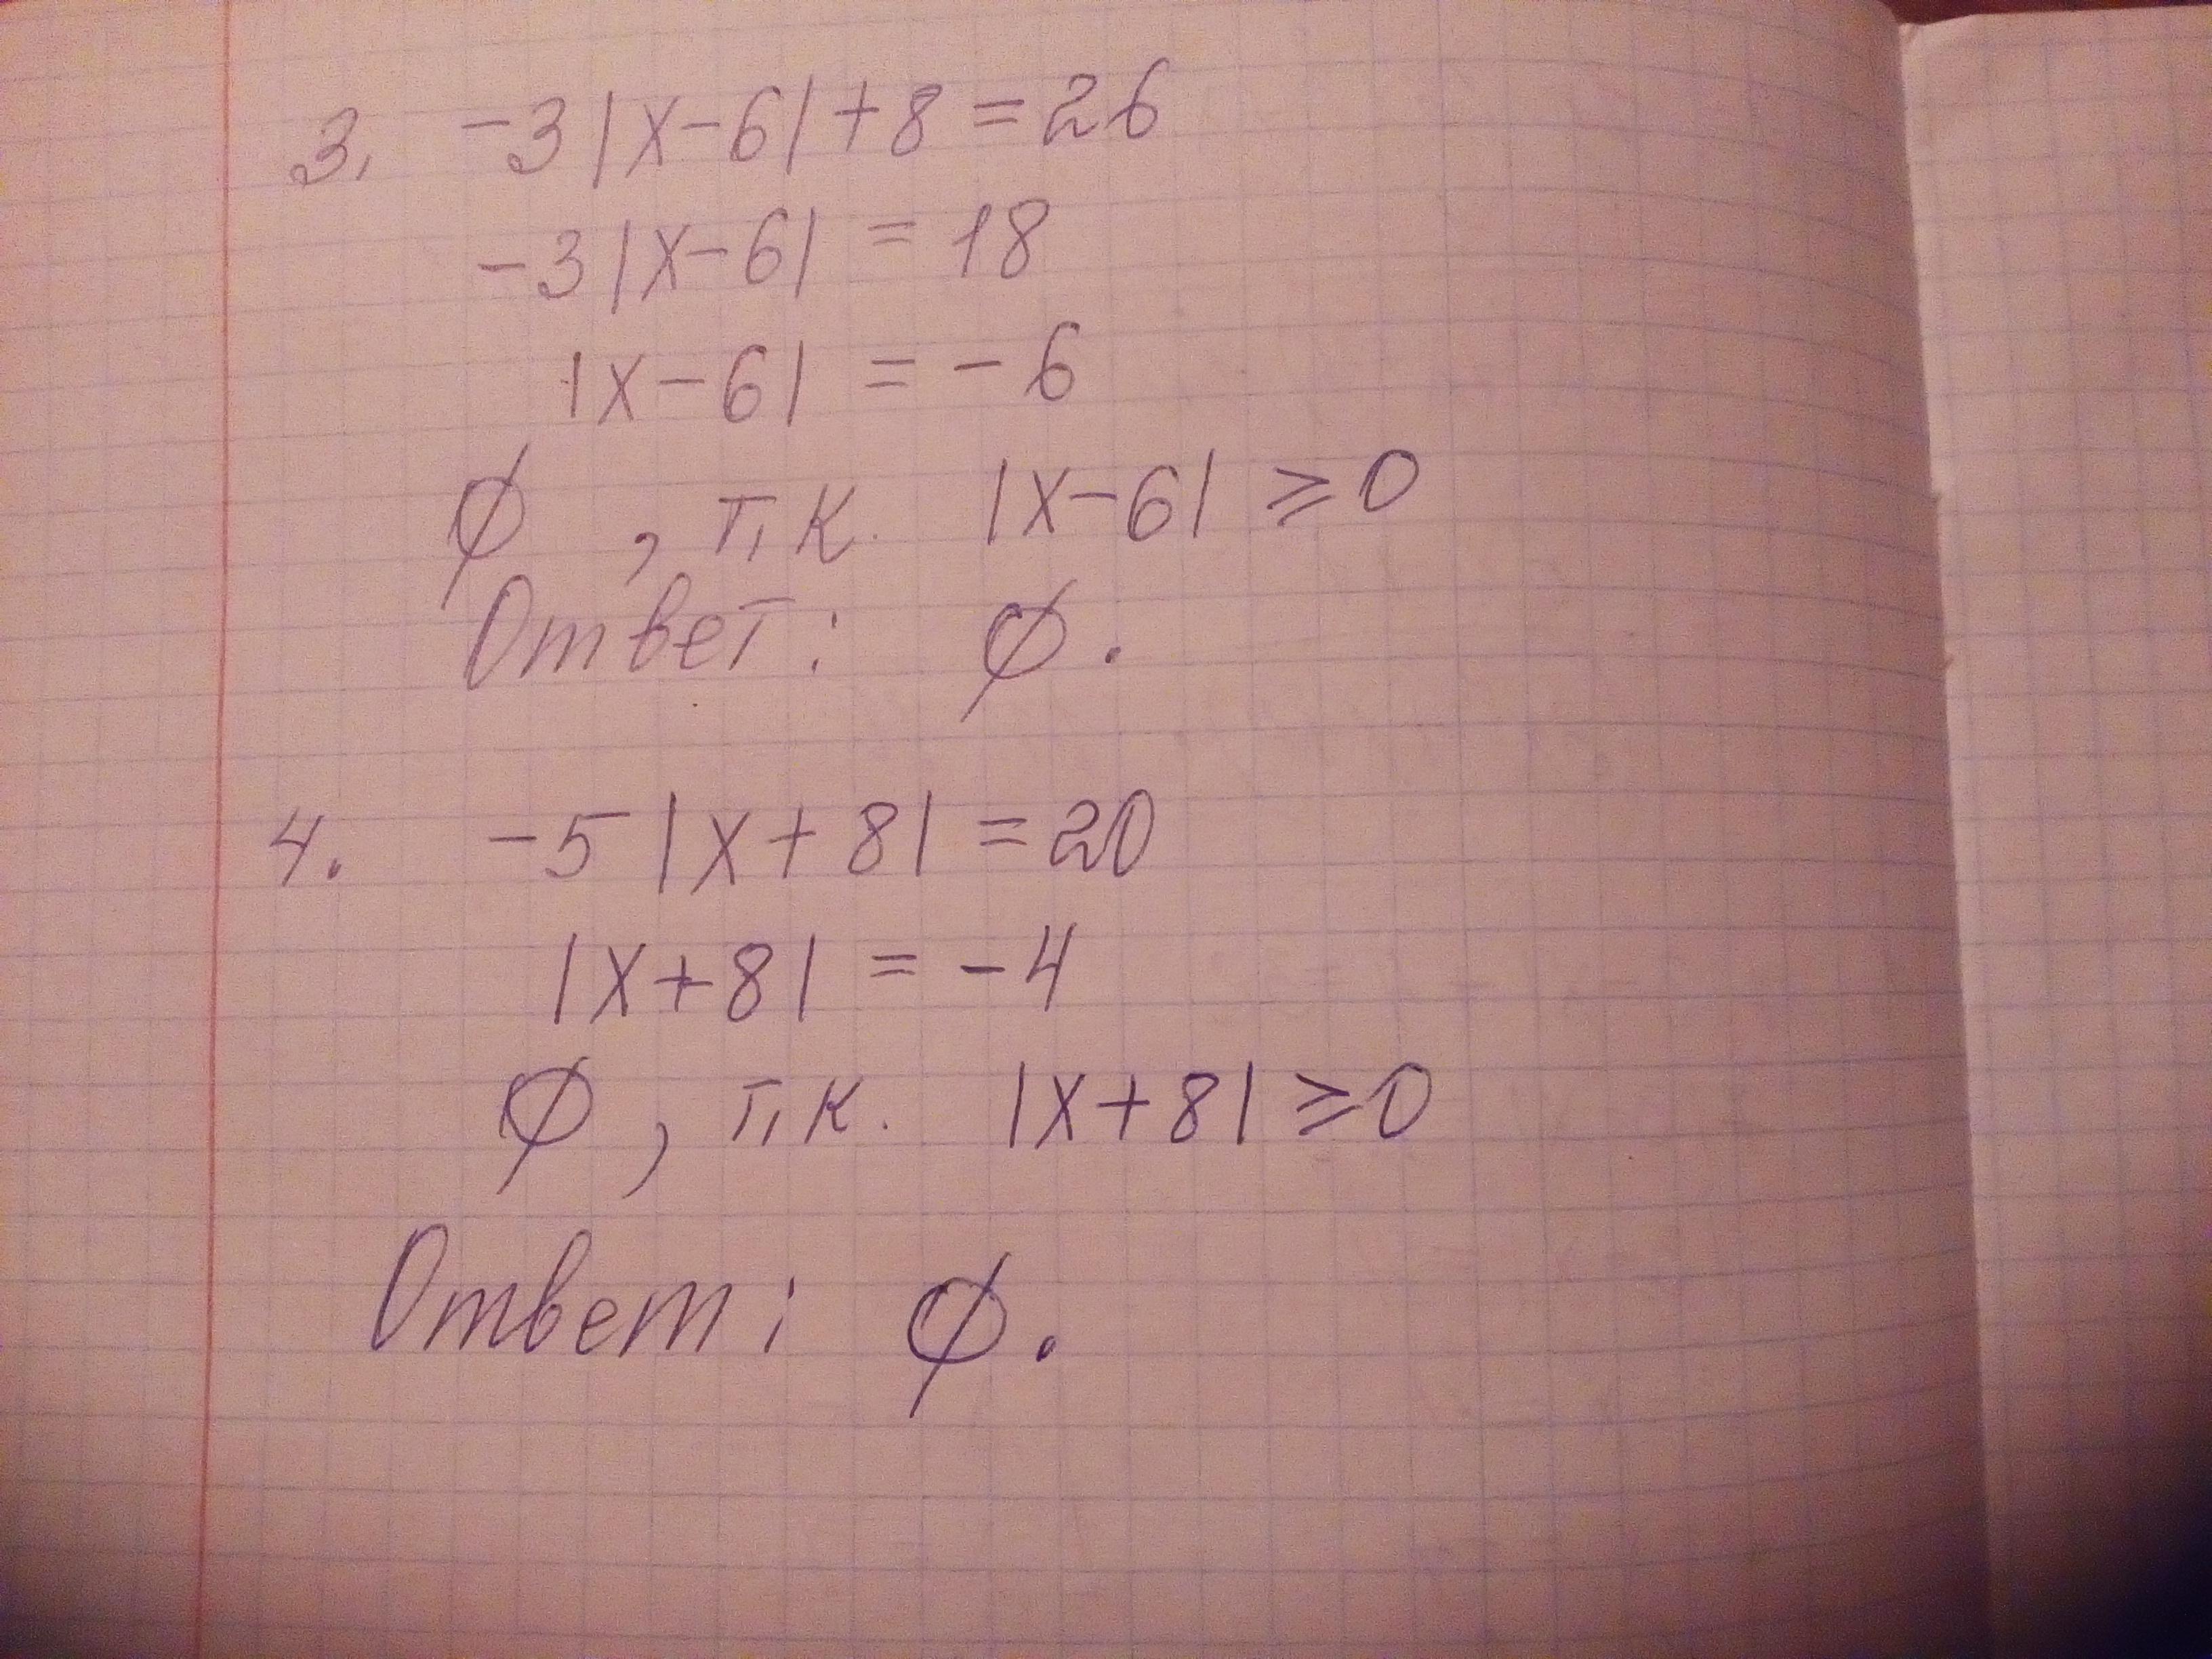 3. -3|x-6|+8=26
-3|x-6| = 18
|x-6| = -6
∅, т.к. |x-6| ⩾ 0
Ответ: ∅.
4. -5|x+8| = 20
|x+8| = -4
∅, т.к. |x+8| ⩾ 0
Ответ: ∅.